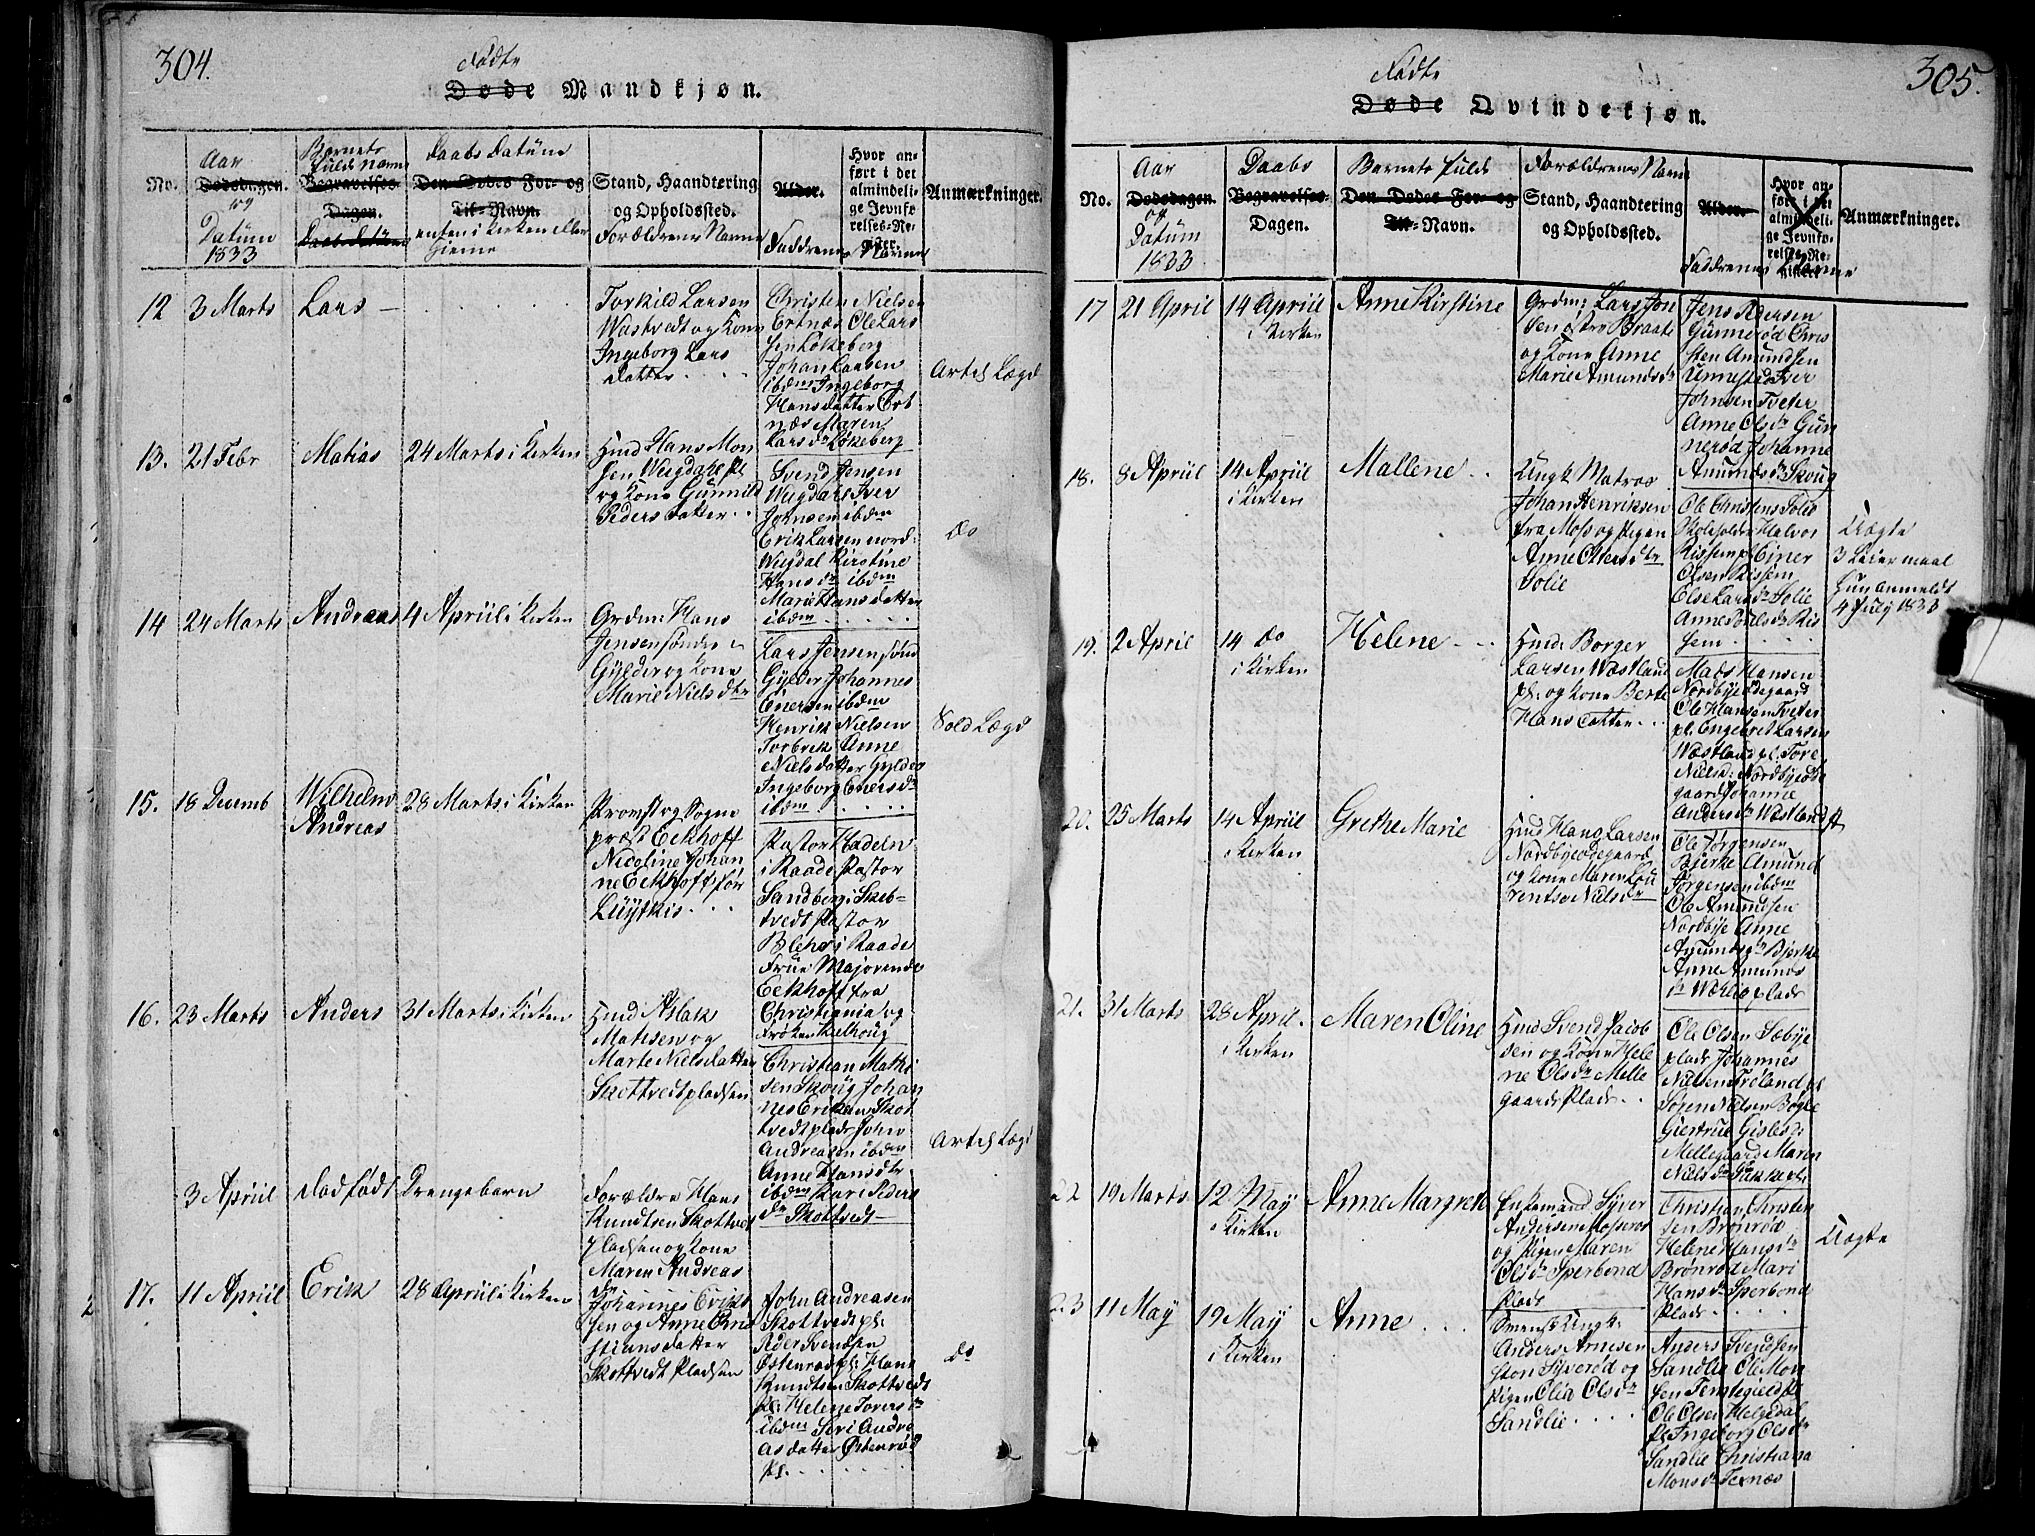 304.
Fødte
Døde Mandkjøn.
No.
Aar
Dødsdagen.
og
Datum
1833
Barnets
fulde Navn
Begravelses-
Dagen.
Daabs datum
Daabs Datum
Den Dødes For- og
Til-Navn.
enten i Kirken eller
Hjeme
Stand, Haandtering
og Opholdssted.
Forældrenes Navne
Alder.
Faddrenes Navne
Hvor an-
ført i det
almindeli-
ge Jevnfø-
relses-Re-
gister.
Anmærkninger.
12
3 Marts
Lars
Torkild Larsen
Wastvedt og Kone
Ingeborg Lars
datter
Christen Nielsen
Ertnæs Ole Lars
sen Løkeberg
Johan Larsen
ibdm Ingeborg
Hansdatter Ert
næs Maren
Larsdr Løkeberg
Artel Lægd
13.
21 Febr
Matias
24 Marts i Kirken
Huusmd Hans Mon
sen Wugdahl pl
og Kone Gunnild
Peders datter
Svend Jensen
Wugdahl Iver
Johnsen ibdm
Erik Larsen nord:
Wugdal Kirstine
Hansdr ibdm
Marie Hansdatter
ibdm
do
14
24 Marts
Andreas
4 Apriil i Kirken
Grdm: Hans
Jensen søndre
Gylder og Kone
Marie Nielsdtr
Lars Jensen sønd
Gylder Johannes
Enersen ibdm
Henrik Nielsen
Torbrek Anne
Nielsdatter Gylder
Ingeborg Enersdr
ibdm
Sold Lægd
15.
18 Decemb
Wilhelm
Andreas
28 Marts i Kirken
Provst og Sogne
præst Eckhoff
Nicoline Johan
ne Eckhoff før
Lüytkis
Pastor Hadeln
i Raade Pastor
Sandberg i Skeb-
tvedt Pastor
Blehr i Raade
Frue Majorinde
Eckhoff fra
Christiania og
Frøken Kulhoug
16.
23 Marts
Anders
31 Marts i Kirken
Huusmd Aslak
Matisen og
Marte Nielsdatter
Skottvedtpladsen
Christian Mathi
sen Skoug Johan
nes Eriksen Skot
tvedtplads John
Andreasen ibdm
Anne Hansdtr
ibdm Kari Peders
dr Skottvedt
Artel Lægd
3 Apriil
Dødfødt Drengebarn
Forældre Hans
Knudtsen Skottvedt
pladsen og Kone
Maren Andreas
dr
17.
11 Apriil
Erik
28 Apriil i Kirken
Johannes Eriks
sen og Anne Chri
stiansdatter
Skottvedt Pladsen
John Andreasen
Skottvedt pl:
Peder Svendsen
Østenrød pl: Hans
Knudtsen Skottvedt
pl: Helene Toresdr
ibdm Siri Andre
asdatter Østenrød
pl.
do
305.
Fødte
Døde Qvindekjøn.
No.
Aar
Dødsdagen.
og
Datum
1833
Daabs
Begravelses-
Dagen.
Barnets fulde
Den Dødes For- og
Til-Navn.
Forældrenes Navne
Stand, Haandtering
og Opholdssted.
Alder.
Faddrenes Navne
Hvor an-
ført i det
almindeli-
ge Jevnfø-
relses-Re-
gister.
Anmærkninger.
17
21 April
14 Apriil
i Kirken
Anne Kirstine
Grdm: Lars Jon
sen østre Braate
og Kone Anne
Marie Amundsdr
Jens Pedersen
Gunnerød Chris
sten Amundsen
Unnestad Iver
Johnsen Tveter
Anne Olsdr Gun
nerød Johanne
Amundsdr Skoug
18.
8 Apriil
14 Apriil
i Kirken
Mallene
Ungk: Matros
Johan Henriksen
fra Moss og Pigen
Anne Olsensdtr
Solie
Ole Christens Solie
Skoleholder Halvor
Rissem pl Einer
Olsen Rissem
Else Larsdr Solie
Anne Nielsdr Ris
sem
Uægte
3 Leiermaal
Hun anmeldt
4 July 1833
19.
2 April
14 do
i Kirken
Helene
Huusmd Borger
Larsen Wæstlund
pl. og Kone Berte
Hans datter
Mads Hansen
Nordbye ødegaard
Ole Hansen Tveter
pl. Engebret Larsen
Wæstlund pl. Tore
Nielsd: Nordbyeøde
gaard Johanne
Andersdr Wæstlund pl
20.
25 Marts
14 Apriil
i Kirken
Grethe Marie
Huusmd Hans Larsen
Nordbyeødegaard
og Kone Maren Lou
rentse Nielsdr
Ole Jørgensen
Bjerke Amund
Jørgensen ibdm
Ole Amundsen
Nordbye Anne
Amundsdr Bjerke
Anne Amunds
dr Wærlie plads
21.
31 Marts
28 April
i Kirken
Maren Oline
Huusmd Svend Jacob
sen og Kone Hele
ne Olsdr Melle
gaards Plads
Ole Olsen Sæbye
plads Johannes
Nielsen Froland pl
Søren Nielsen Bøgle
Giertrue Gislesdr
Mellegaard Maren
Nielsdr Bække pl:
22
19 Marts
12 May
i Kirken
Anne Margrete
Enkemand Syver
Andersen Mosserød
og Pigen Maren
Olsdr Sperbond
Plads
Christian Christen
sen Brønrød
Helene Hansdr
Brønrød Mari
Hansdr Sperbond
Plads
Uægte
23
11 May
19 May
i Kirken
Anne
Svensk Ungk:
Anders Arnesen
ston Syverød og
Pigen Olia Olsdr
Sandlie
Anders Svendsen
Sandlie Ole Mon
sen Temlegied pl
Ole Olsen Helgedal
pl Ingeborg Olsdr
Sandlie Christiana
Monsdr Ternæs